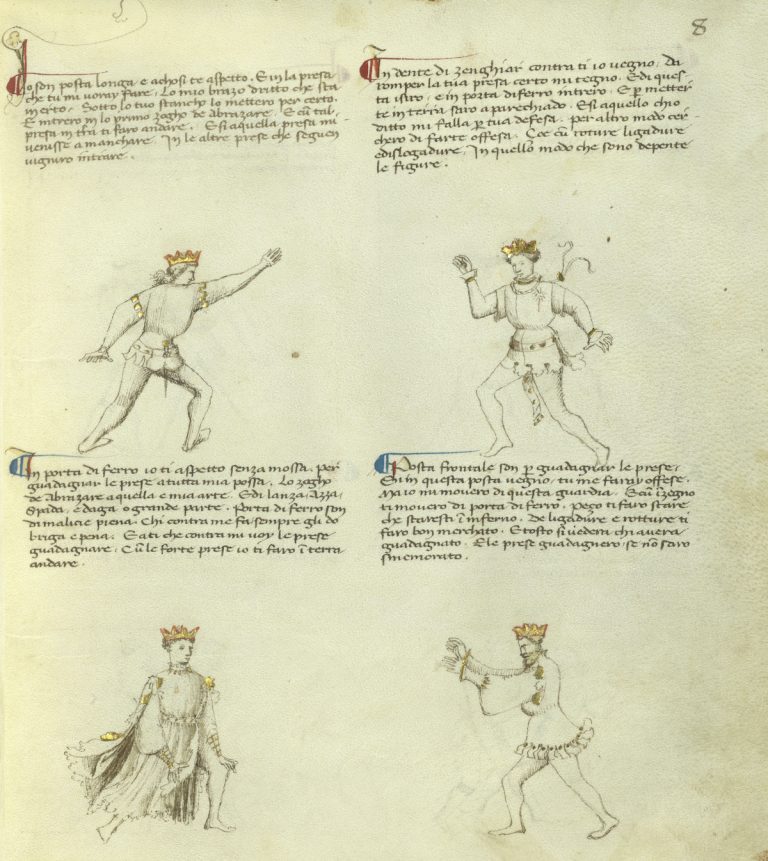 8
Io son posta longa e achosi te aspetto. E in la presa
che tu mi voray fare. Lo mio brazo dritto che sta
in erto. Sotto lo tuo stancho lo mettero per certo.
E intrero in lo primo zogho de abrazare. E cum tal
presa in tra ti faro andare. E si aquella presa mi
venisse a manchare. In le altre prese che seguen
vigniro intrare.
In dente di zenghiar contra ti io vegno. Da
romper la tua presa certo mi tegno. E di ques
ta isiro, e in porta di ferro intrero. E per metter
te in terra saro aparechiado. E si aquello ch'io
ditto mi falla per tua defesa. per altro modo cer
chero di farte offesa. Coe cum roture ligadure
e dislogadure. In quello modo che sono depente
le figure.
In porta di ferro io ti aspetto senza mossa. per
guadagnar le prese a tutta mia possa. Lo zogho
de Abrazare aquella e mia arte. E di lanza, Azza,
Spada, e daga o grande parte. Porta di ferro son
di malicie piena. Chi contra me fa sempre gli do
briga e pena. E a ti che contra mi voy le prese
guadagnare. Cum le forte prese io ti faro in terra
andare.
Posta frontale son per guadagnar le prese.
Si in questa posta vegno, tu me faray offese.
Ma io mi movero di questa guardia. E cum inzegno
ti movero di porta di ferro. pezo ti faro stare
che staresti in inferno. De ligadure e rotture ti
faro bon merchato. E tosto si vedera chi avera
guadagnato. E le prese guadagnero se non saro
smemorato.